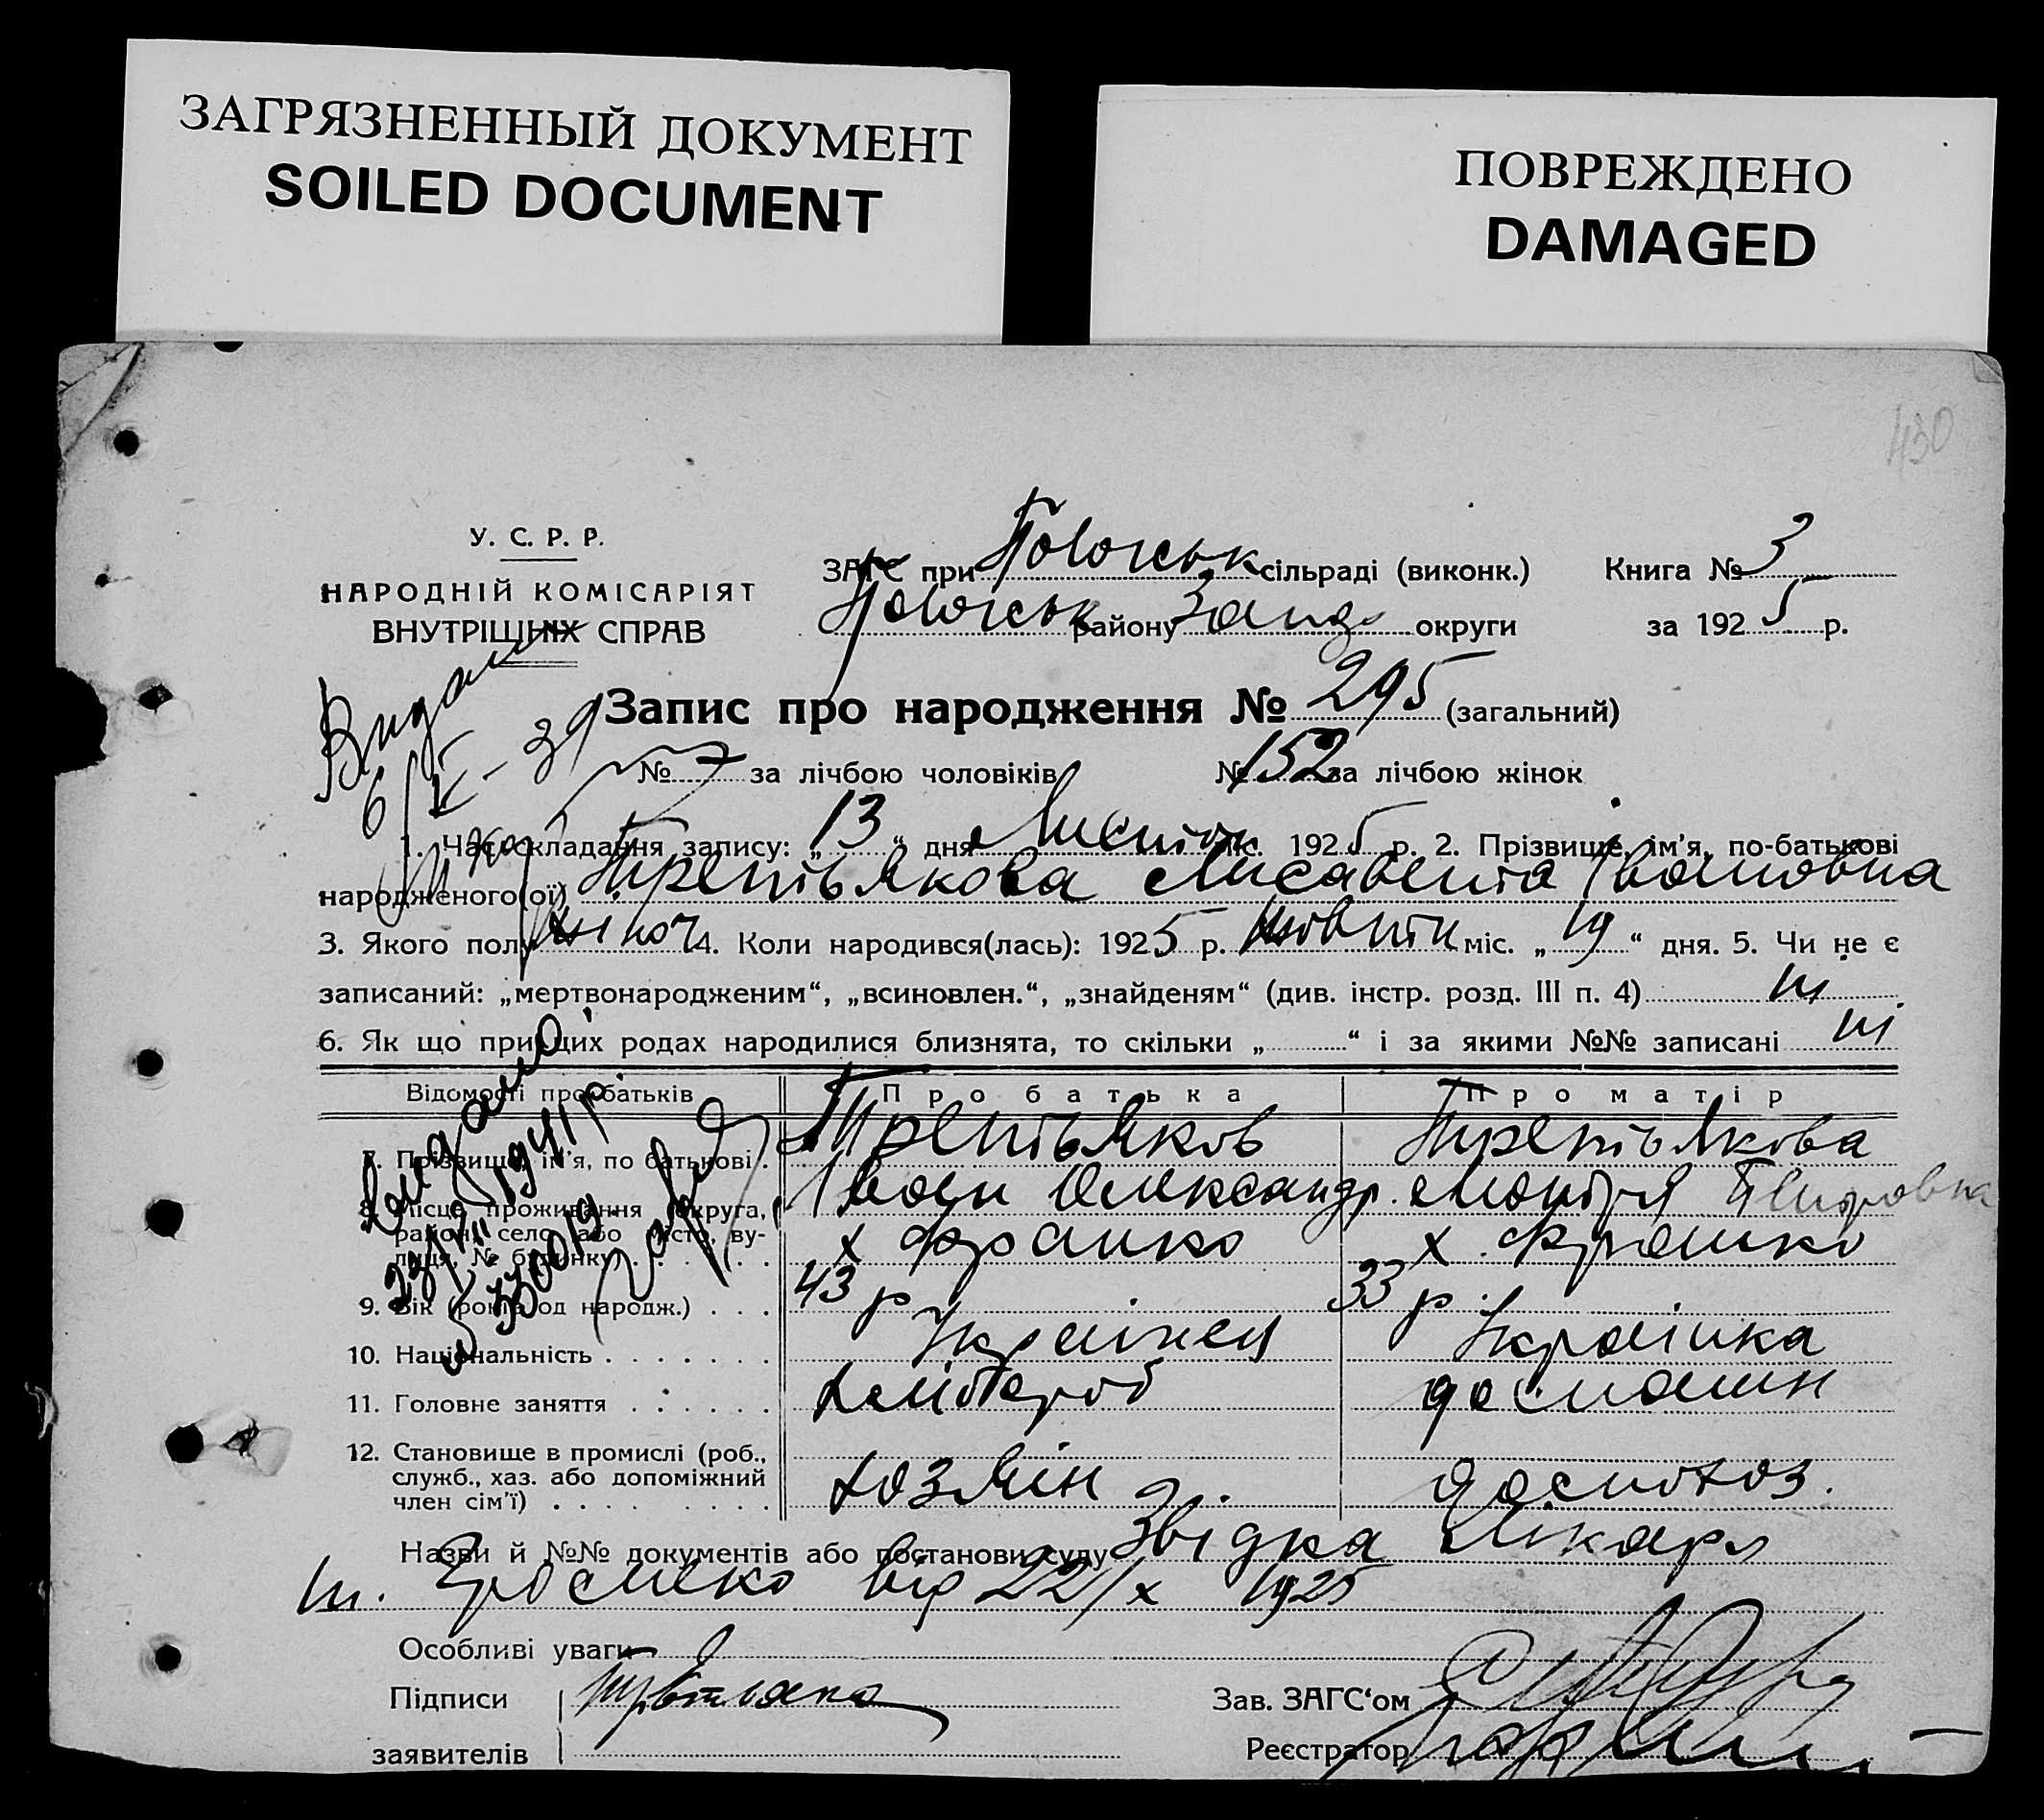 ЗАГРЯЗНЕННЫЙ ДОКУМЕНТ
SOILED DOCUMENT
ПОВРЕЖДЕНО
DAMAGED
430
У. С. Р. Р.
НАРОДНІЙ КОМІСАРІЯТ
ВНУТРІШНІХ СПРАВ
ЗАГС при сільраді (виконк.) Книга № 3
району Запор округи за 1925 р.
Видано
Запис про народження № 295 (загальний)
№ за лічбою чоловіків № 152 за лічбою жінок
1. Час складання запису: „13“ дня Листоп міс. 1925 р. 2. Прізвище, ім'я, по-батькові
народженого(ої) Третьякова Лисавента Івановна
3. Якого полу жіноч 4. Коли народився(лась): 1925 р. жовтн міс. „19“ дня. 5. Чи не є
записаний: „мертвонародженим“, „всиновлен.“, „знайденям“ (див. інстр. розд. III п. 4) ні
6. Як що при цих родах народилися близнята, то скільки „ “ і за якими №№ записані ні
Відомості про батьків Про батька Про матір
7. Прізвище, ім'я, по батькові Третьяков Третьякова
Іван Олександр. Марія
8. Місце проживання (округа, район, село, або місто, вулиця, № будинку) х Франко х Франко
9. Вік (років од народж.) 43 р 33 р.
10. Національність Українец Українка
11. Головне заняття хлібороб домашн
12. Становище в промислі (роб., служб., хаз. або допоміжний член сім'ї) хозяїн допохоз.
Видано
1941 р.
Назви й №№ документів або постанови суду Звідка Лікаря
від 22/X 1925
Особливі уваги
Підписи
заявителів
Зав. ЗАГС'ом
Реєстратор